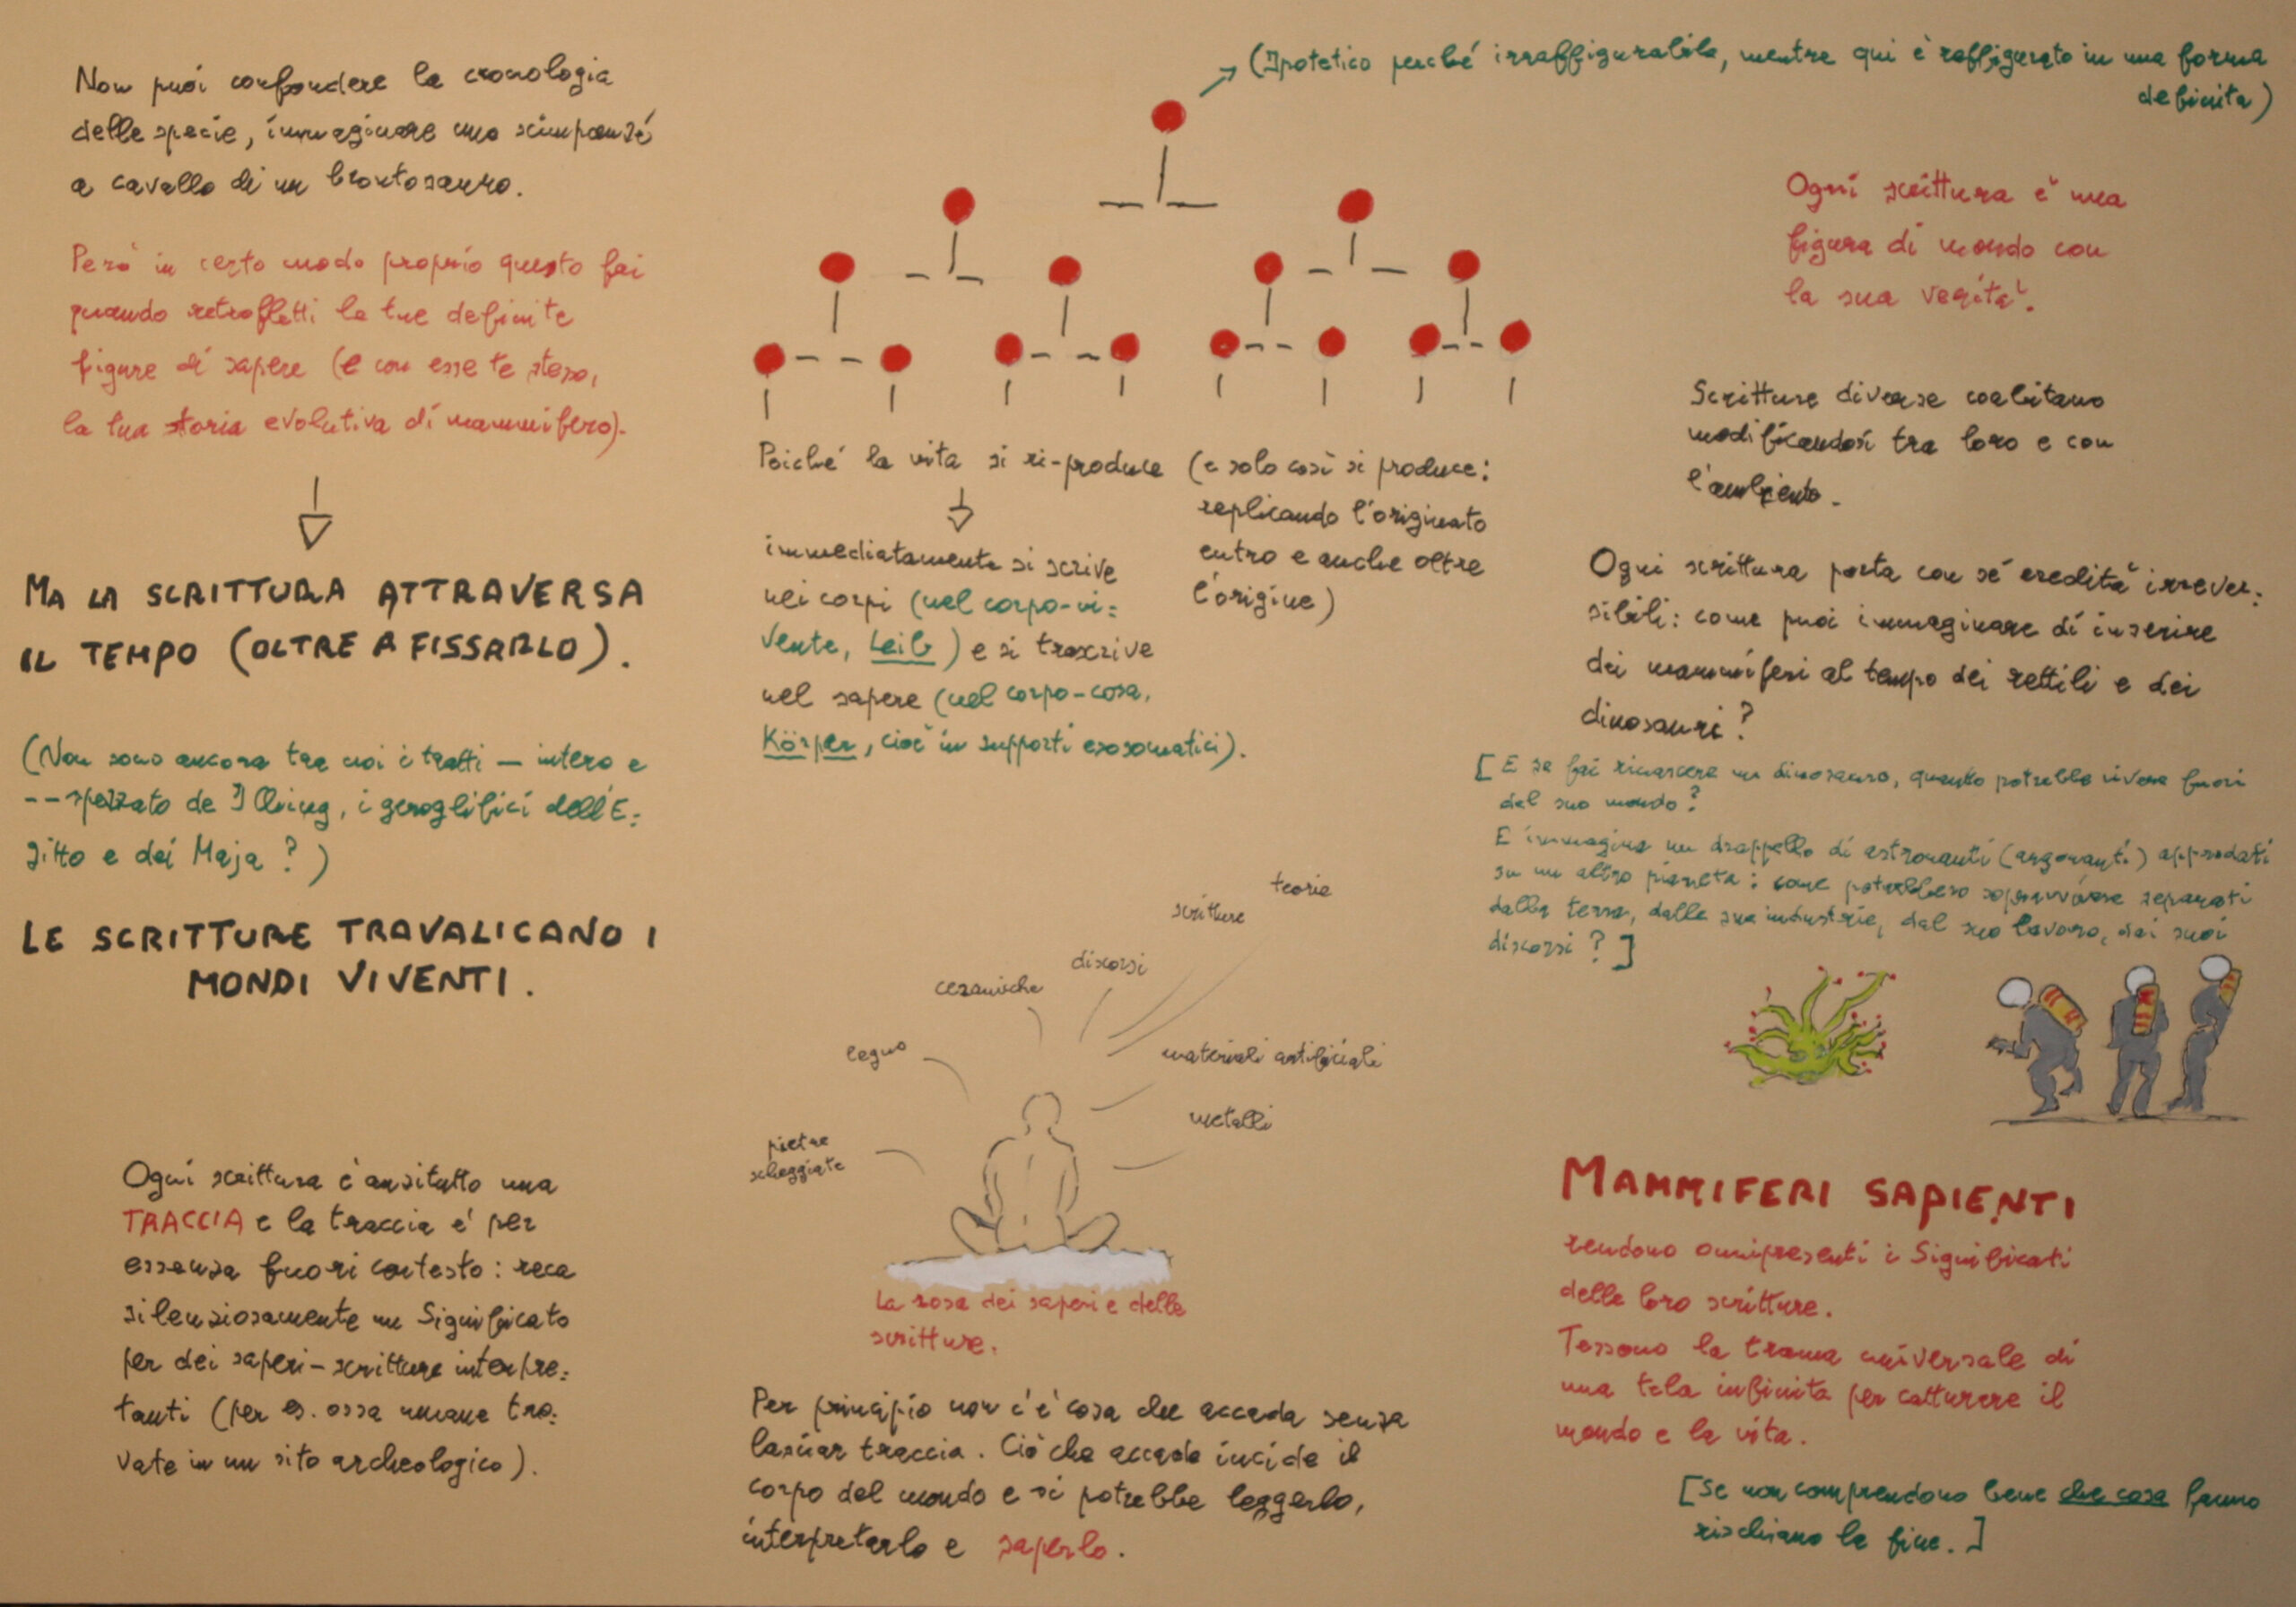 Non puoi confondere la cronologia
delle specie, immaginare uno scimpanzé
a cavallo di un brontosauro.
Però in certo modo proprio questo fai
quando retrofletti le tue definite
figure di sapere (e con esse te stesso,
la tua storia evolutiva di mammifero).
MA LA SCRITTURA ATTRAVERSA
IL TEMPO (OLTRE A FISSARLO).
(Non sono ancora tra noi i tratti — intero e
-- spezzato de I Qing, i geroglifici dell'E=
gitto e dei Maja ?)
LE SCRITTURE TRAVALICANO I
MONDI VIVENTI.
Ogni scrittura è anzitutto una
TRACCIA e la traccia è per
essenza fuori contesto: reca
silenziosamente un Significato
per dei saperi-scritture interpre=
tanti (per es. ossa umane tro=
vate in un sito archeologico).
(Ipotetico perché irraffigurabile, mentre qui è raffigurato in una forma
definita)
Poiché la vita si ri-produce (e solo così si produce:
replicando l'originato
entro e anche oltre
l'origine)
immediatamente si scrive
nei corpi (nel corpo-vi=
vente, Leib) e si trascrive
nel sapere (nel corpo-cosa,
Körper, cioè in supporti esosomatici).
teorie
scritture
discorsi
ceramiche
legno
materiali artificiali
metalli
pietre
scheggiate
La rosa dei saperi e delle
scritture.
Per principio non c'è cosa che accada senza
lasciar traccia. Ciò che accade incide il
corpo del mondo e si potrebbe leggerlo,
interpretarlo e saperlo.
Ogni scrittura è una
figura di mondo con
la sua verità.
Scritture diverse coabitano
modificandosi tra loro e con
l'ambiente.
Ogni scrittura porta con sé eredità irrever=
sibili: come puoi immaginare di inserire
dei mammiferi al tempo dei rettili e dei
dinosauri?
[E se fai rinascere un dinosauro, quanto potrebbe vivere fuori
dal suo mondo?
E immagina un drappello di astronauti (argonauti) approdati
su un altro pianeta: come potrebbero sopravvivere separati
dalla terra, dalle sue industrie, dal suo lavoro, dai suoi
discorsi?]
MAMMIFERI SAPIENTI
rendono onnipresenti i Significati
delle loro scritture.
Tessono la trama universale di
una tela infinita per catturare il
mondo e la vita.
[Se non comprendono bene che cosa fanno
rischiano la fine.]